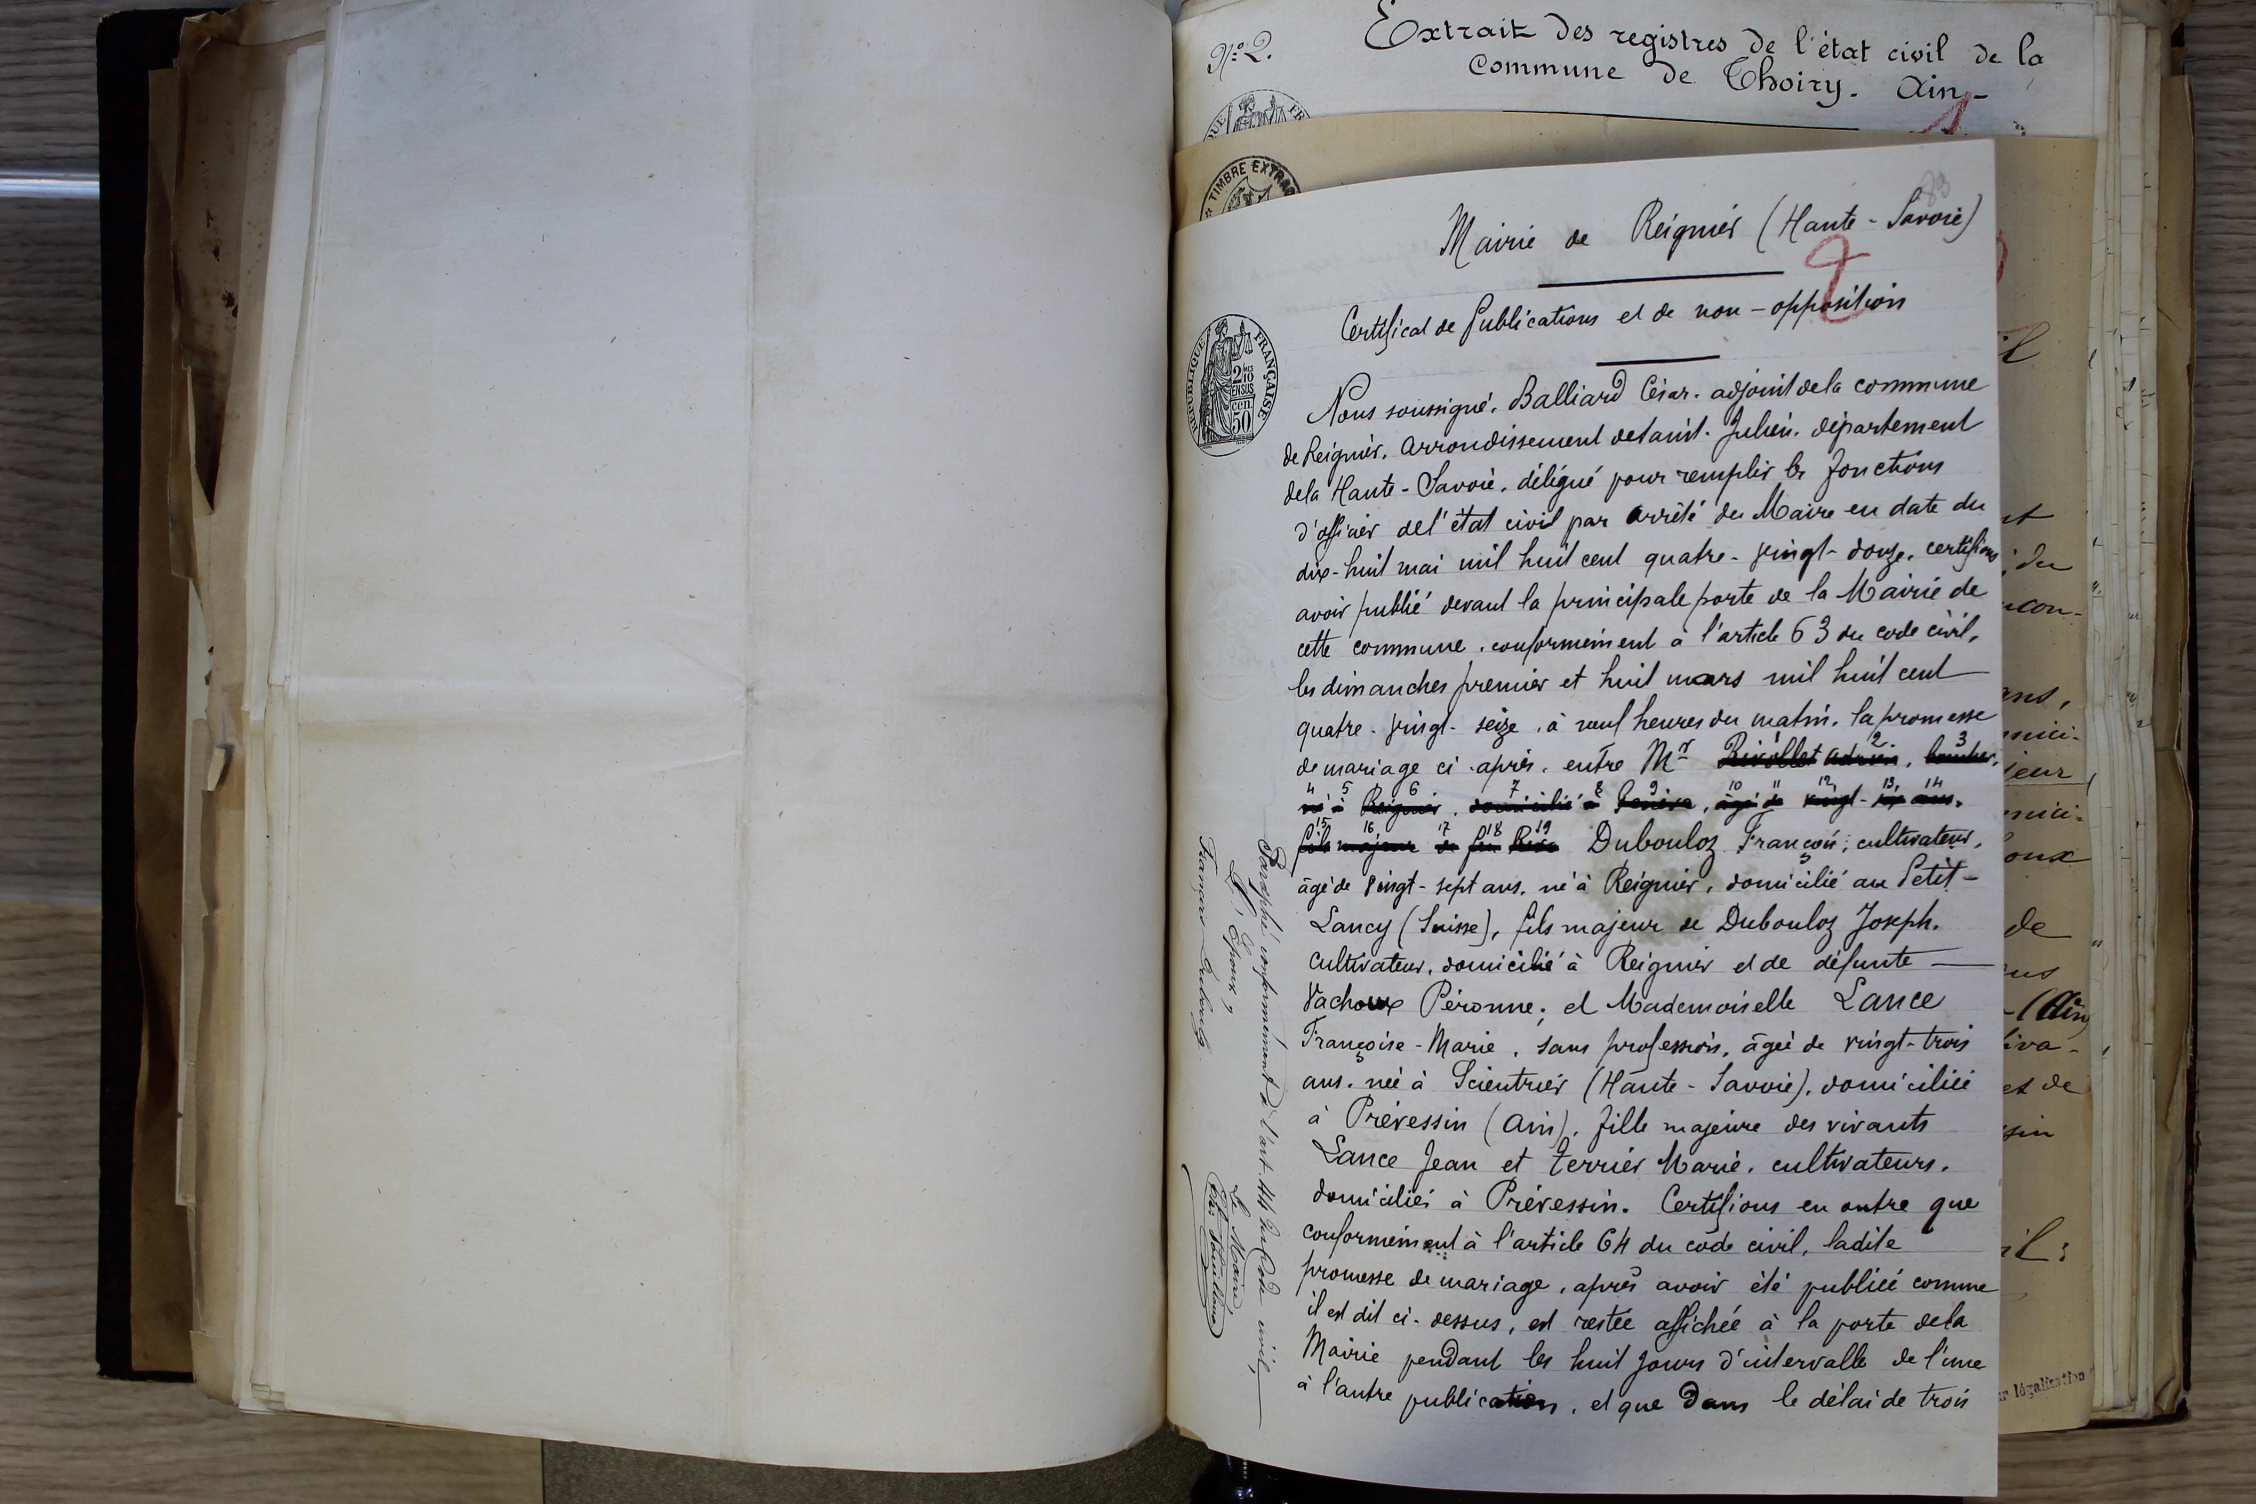 N° 2.
Extrait des registres de l'état civil de la
commune de Thoiry. Ain -
TIMBRE EXTRA
Mairie de Reignier (Haute-Savoie)
2
Certificat de publications et de non-opposition
RÉPUBLIQUE FRANÇAISE
2/10 EN SUS
50 cen
Nous soussigné, Balliard César, adjoint de la commune
de Reignier, arrondissement de Saint-Julien, département
de la Haute-Savoie, délégué pour remplir les fonctions
d'officier de l'état civil par arrêté du Maire en date du
dix-huit mai mil huit cent quatre-vingt-douze, certifions
avoir publié devant la principale porte de la Mairie de
cette commune, conformément à l'article 63 du code civil,
les dimanches premier et huit mars mil huit cent
quatre-vingt-seize, à neuf heures du matin, la promesse
de mariage ci-après, entre Mr Rivollet Adrien, boucher,
né à Reignier, domicilié à Genève, âgé de vingt-six ans,
fils majeur de feu Rivo Dubouloz François, cultivateur,
âgé de vingt-sept ans, né à Reignier, domicilié au Petit-
Lancy (Suisse), fils majeur de Dubouloz Joseph,
cultivateur, domicilié à Reignier et de défunte
Vachoux Péronne; et Mademoiselle Lance
Françoise-Marie, sans profession, âgée de vingt-trois
ans, née à Scientrier (Haute-Savoie), domiciliée
à Prévessin (Ain), fille majeure des vivants
Lance Jean et Terrier Marie, cultivateurs,
domiciliés à Prévessin. Certifions en outre que
conformément à l'article 64 du code civil, ladite
promesse de mariage, après avoir été publiée comme
il est dit ci-dessus, est restée affichée à la porte de la
Mairie pendant les huit jours d'intervalle de l'une
à l'autre publication, et que dans le délai de trois
Paraphé conformément à l'art. 44 du Code civil,
L'Epoux,
François Dubouloz
Le Maire